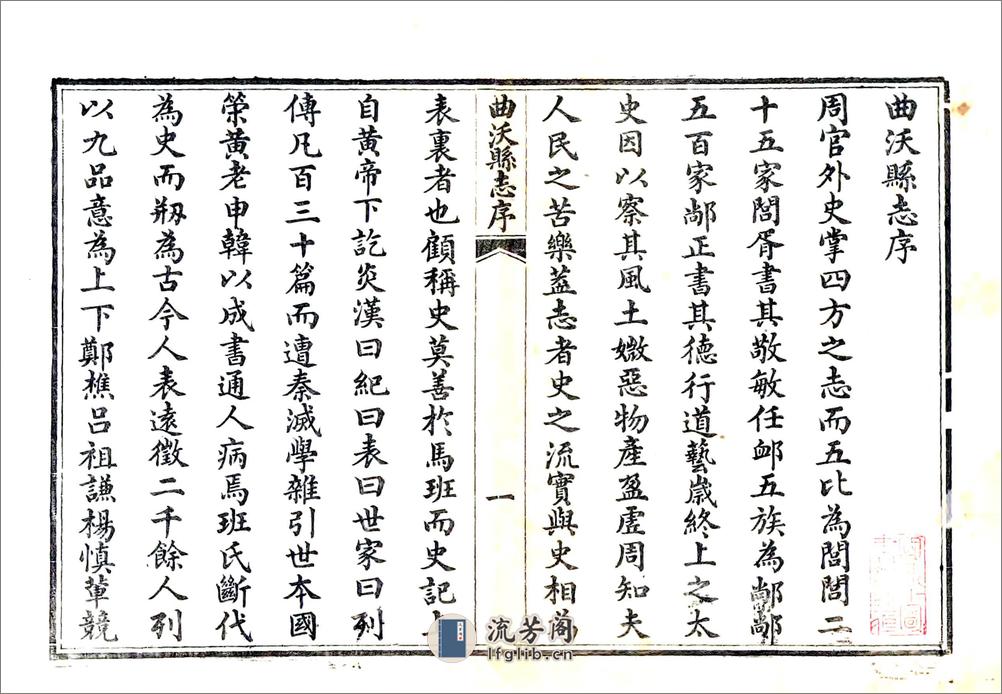 曲沃縣志序
周官外史掌四方之志而五比為閭閭二
十五家閭胥書其敬敏任衈五族為鄙鄙
五百家鄙正書其德行道藝歲終上之太
史因以察其風土媺惡物產盈虛周知夫
人民之苦樂葢志者史之流實與史相
曲沃縣志序
一
表裏者也顧稱史莫善於馬班而史記
自黃帝下訖炎漢曰紀曰表曰世家曰列
傳凡百三十篇而遭秦滅學雜引世本國
策黃老申韓以成書通人病焉班氏斷代
為史而剏為古今人表遠徵二千餘人列
以九品意為上下鄭樵呂祖謙楊慎軰競
流芳阁
lfglib.cn